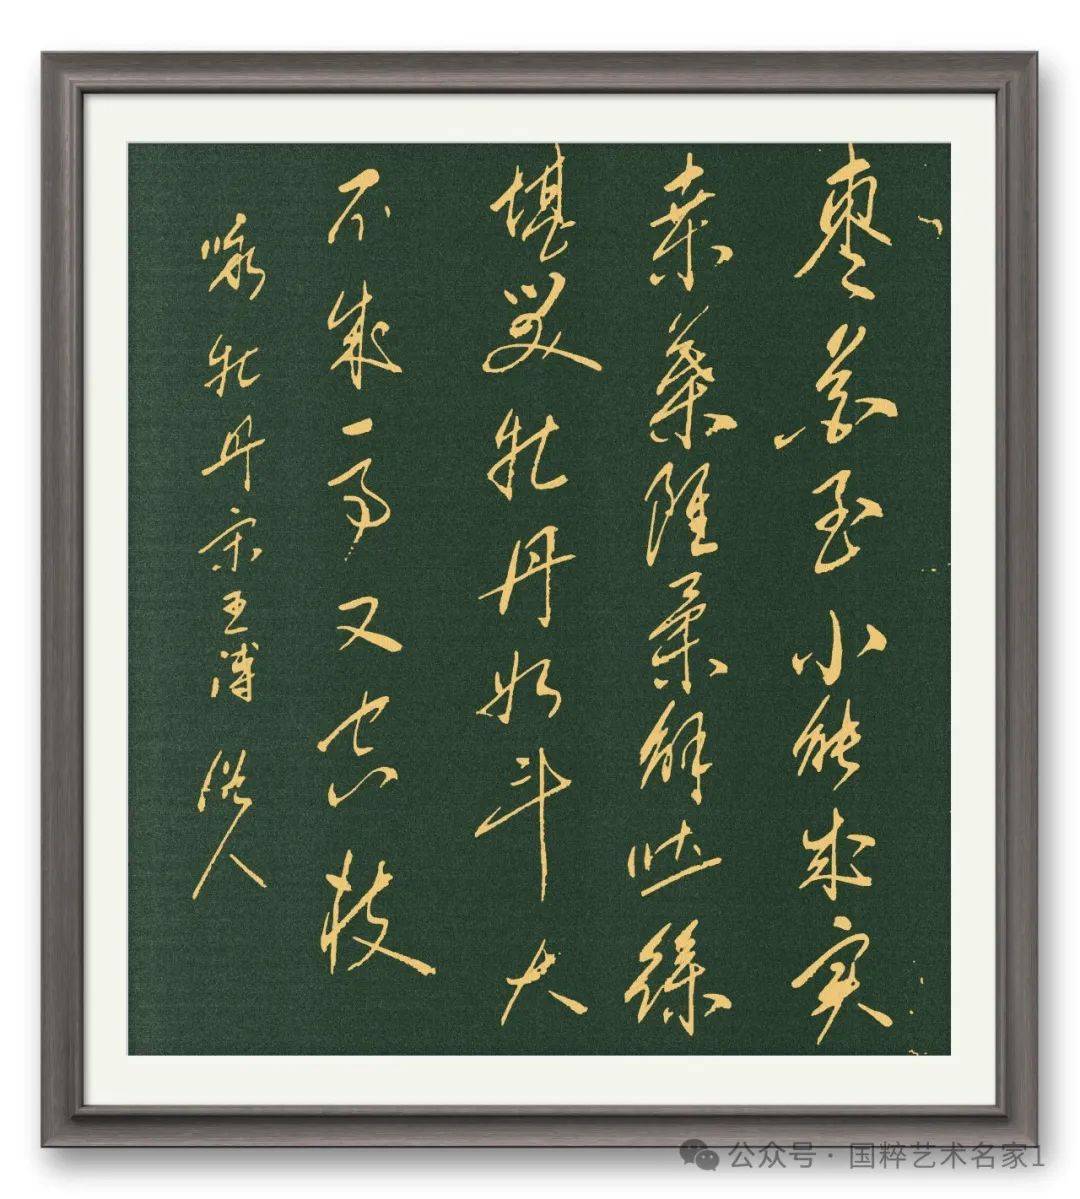 枣花至小能成实
桑葉雖柔解吐絲
堪笑牡丹如斗大
不成一事又空枝
咏牡丹 宋 王溥 人
公众号·国粹艺术名家1